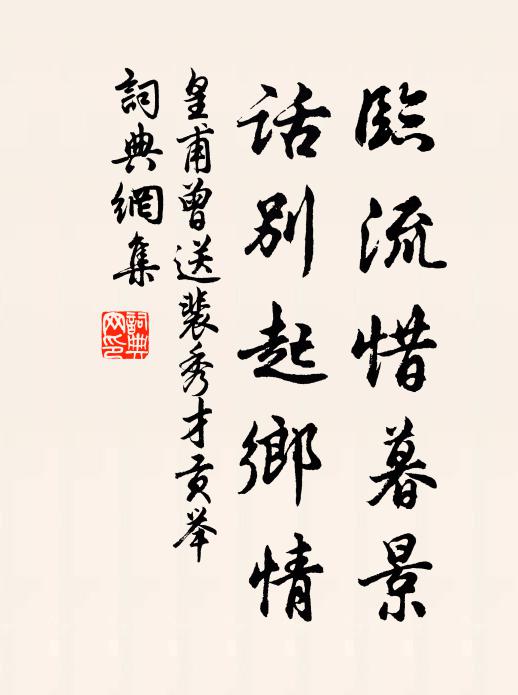 臨流惜暮景
话別起鄉情
皇甫曾送裴秀才贡举
詞典網集
詞典
网印